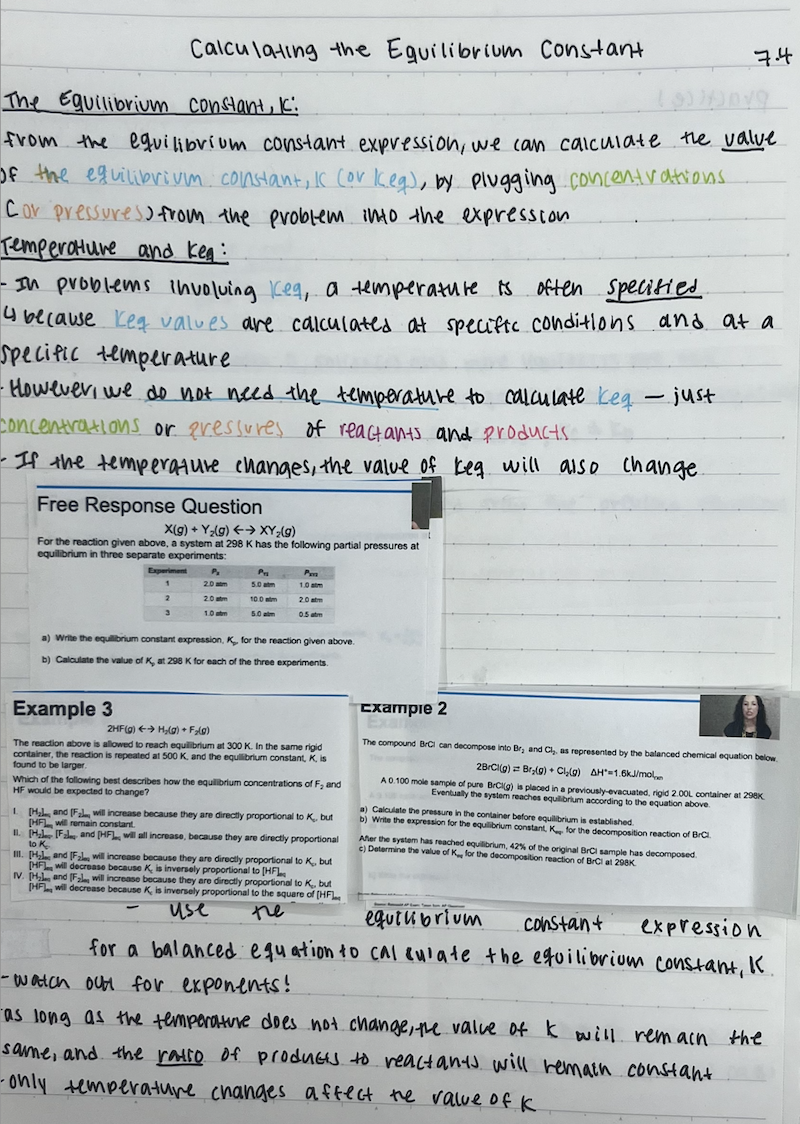 Calculating the Equilibrium Constant
7.4
The Equilibrium Constant, K:
from the equilibrium constant expression, we can calculate the value
of the equilibrium constant, K (or Keq), by plugging concentrations
(or pressures) from the problem into the expression
Temperature and Keq:
- In problems involving Keq, a temperature is often specified
↳ because Keq values are calculated at specific conditions and at a
specific temperature
· However, we do not need the temperature to calculate Keq — just
concentrations or pressures of reactants and products
- If the temperature changes, the value of Keq will also change
Free Response Question
X(g) + Y₂(g) ←→ XY₂(g)
For the reaction given above, a system at 298 K has the following partial pressures at
equilibrium in three separate experiments:
Experiment Pₓ P_Y2 P_XY2
1 2.0 atm 5.0 atm 1.0 atm
2 2.0 atm 10.0 atm 2.0 atm
3 1.0 atm 5.0 atm 0.5 atm
a) Write the equilibrium constant expression, Kₚ, for the reaction given above.
b) Calculate the value of Kₚ at 298 K for each of the three experiments.
Example 3
2HF(g) ←→ H₂(g) + F₂(g)
The reaction above is allowed to reach equilibrium at 300 K. In the same rigid
container, the reaction is repeated at 500 K, and the equilibrium constant, K, is
found to be larger.
Which of the following best describes how the equilibrium concentrations of F₂ and
HF would be expected to change?
I. [H₂]eq and [F₂]eq will increase because they are directly proportional to Kc, but
[HF]eq will remain constant.
II. [H₂]eq, [F₂]eq, and [HF]eq will all increase, because they are directly proportional
to Kc.
III. [H₂]eq and [F₂]eq will increase because they are directly proportional to Kc, but
[HF]eq will decrease because Kc is inversely proportional to [HF]eq
IV. [H₂]eq and [F₂]eq will increase because they are directly proportional to Kc, but
[HF]eq will decrease because K is inversely proportional to the square of [HF]eq
Example 2
The compound BrCl can decompose into Br₂ and Cl₂, as represented by the balanced chemical equation below.
2BrCl(g) ⇌ Br₂(g) + Cl₂(g) ΔH°=1.6kJ/molrxn
A 0.100 mole sample of pure BrCl(g) is placed in a previously-evacuated, rigid 2.00L container at 298K.
Eventually the system reaches equilibrium according to the equation above.
a) Calculate the pressure in the container before equilibrium is established.
b) Write the expression for the equilibrium constant, Keq, for the decomposition reaction of BrCl.
After the system has reached equilibrium, 42% of the original BrCl sample has decomposed.
c) Determine the value of Keq for the decomposition reaction of BrCl at 298K.
- use the equilibrium constant expression
for a balanced equation to calculate the equilibrium constant, K
- watch out for exponents!
as long as the temperature does not change, the value of K will remain the
same, and the ratio of products to reactants will remain constant
- only temperature changes affect the value of K